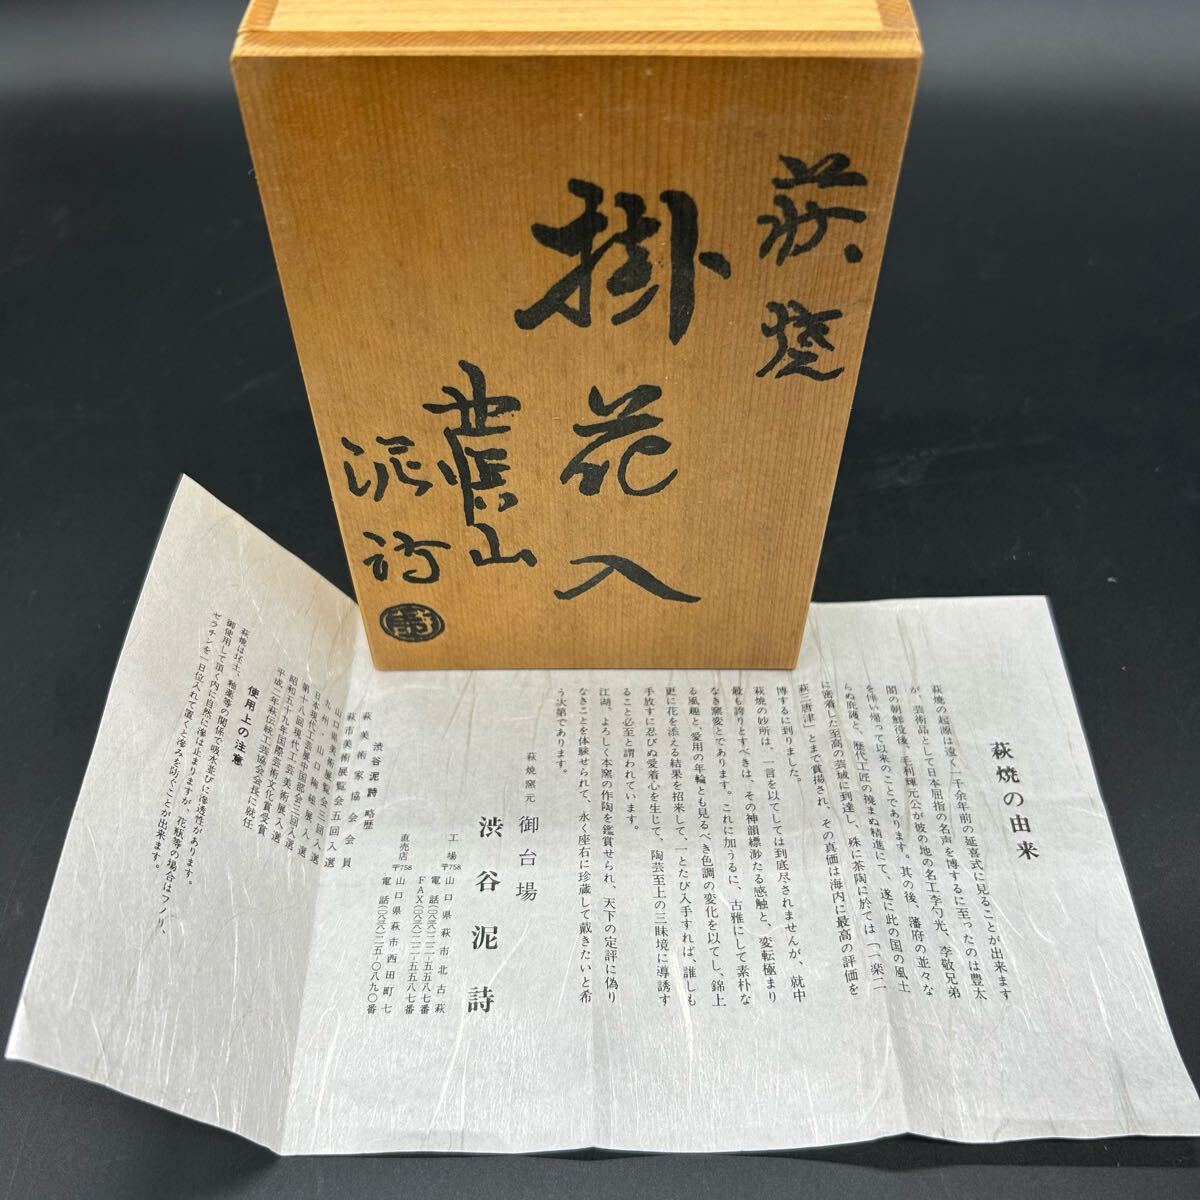 萩焼
掛花入
泥詩
萩焼の由来
萩焼の起源は遠く一千余年前の延喜式に見ることが出来ます
が、芸術品として日本屈指の名声を博するに至ったのは豊太
閤の朝鮮役後、毛利輝元公が彼の地の名工李勺光、李敬兄弟
を伴い帰って以来のことであります。其の後、藩府の並々な
らぬ庇護と、歴代工匠の撓まぬ精進にて、遂に此の国の風土
に密着した至高の芸域に到達し、殊に茶陶に於ては「一楽二
萩三唐津」とまで賞揚され、その真価は海内に最高の評価を
博するに到りました。
萩焼の妙所は、一言を以てしては到底尽されませんが、就中
最も誇りとすべきは、その神韻縹渺たる感触と、変転極まり
なき窯変とであります。これに加うるに、古雅にして素朴な
る風趣と、愛用の年輪とも見るべき色調の変化を以てし、錦上
更に花を添える結果を招来して、一とたび入手すれば、誰しも
手放すに忍びぬ愛着心を生じて、陶芸至上の三昧境に導誘す
ること必至と謂われています。
江湖、よろしく本窯の作陶を鑑賞せられ、天下の定評に偽り
なきことを体験せられて、永く座右に珍蔵して戴きたいと希
う次第であります。
萩焼窯元 御台場
渋谷泥詩
工場 〒758 山口県萩市北古萩
電話(〇八三八)二二-五五八七番
FAX(〇八三八)二二-五五八七番
直売店 〒758 山口県萩市西田町七
電話(〇八三八)二五-〇八九〇番
渋谷泥詩略歴
萩美術家協会会員
萩市美術展覧会五回入選
山口県美術展覧会三回入選
九州・山口陶磁展入選
日本現代工芸展中国部会三回入選
第十八回現代工芸美術展入選
昭和五十九年国際芸術文化賞受賞
平成二年萩伝統工芸協会会長に就任。
使用上の注意
萩焼は坯土、釉薬等の関係で吸水並びに滲透性があります。
御使用して頂く内に自然に滲は止まりますが、花瓶等の場合はフノリ、
ゼラチンを一日位入れて置くと滲みを防ぐことが出来ます。